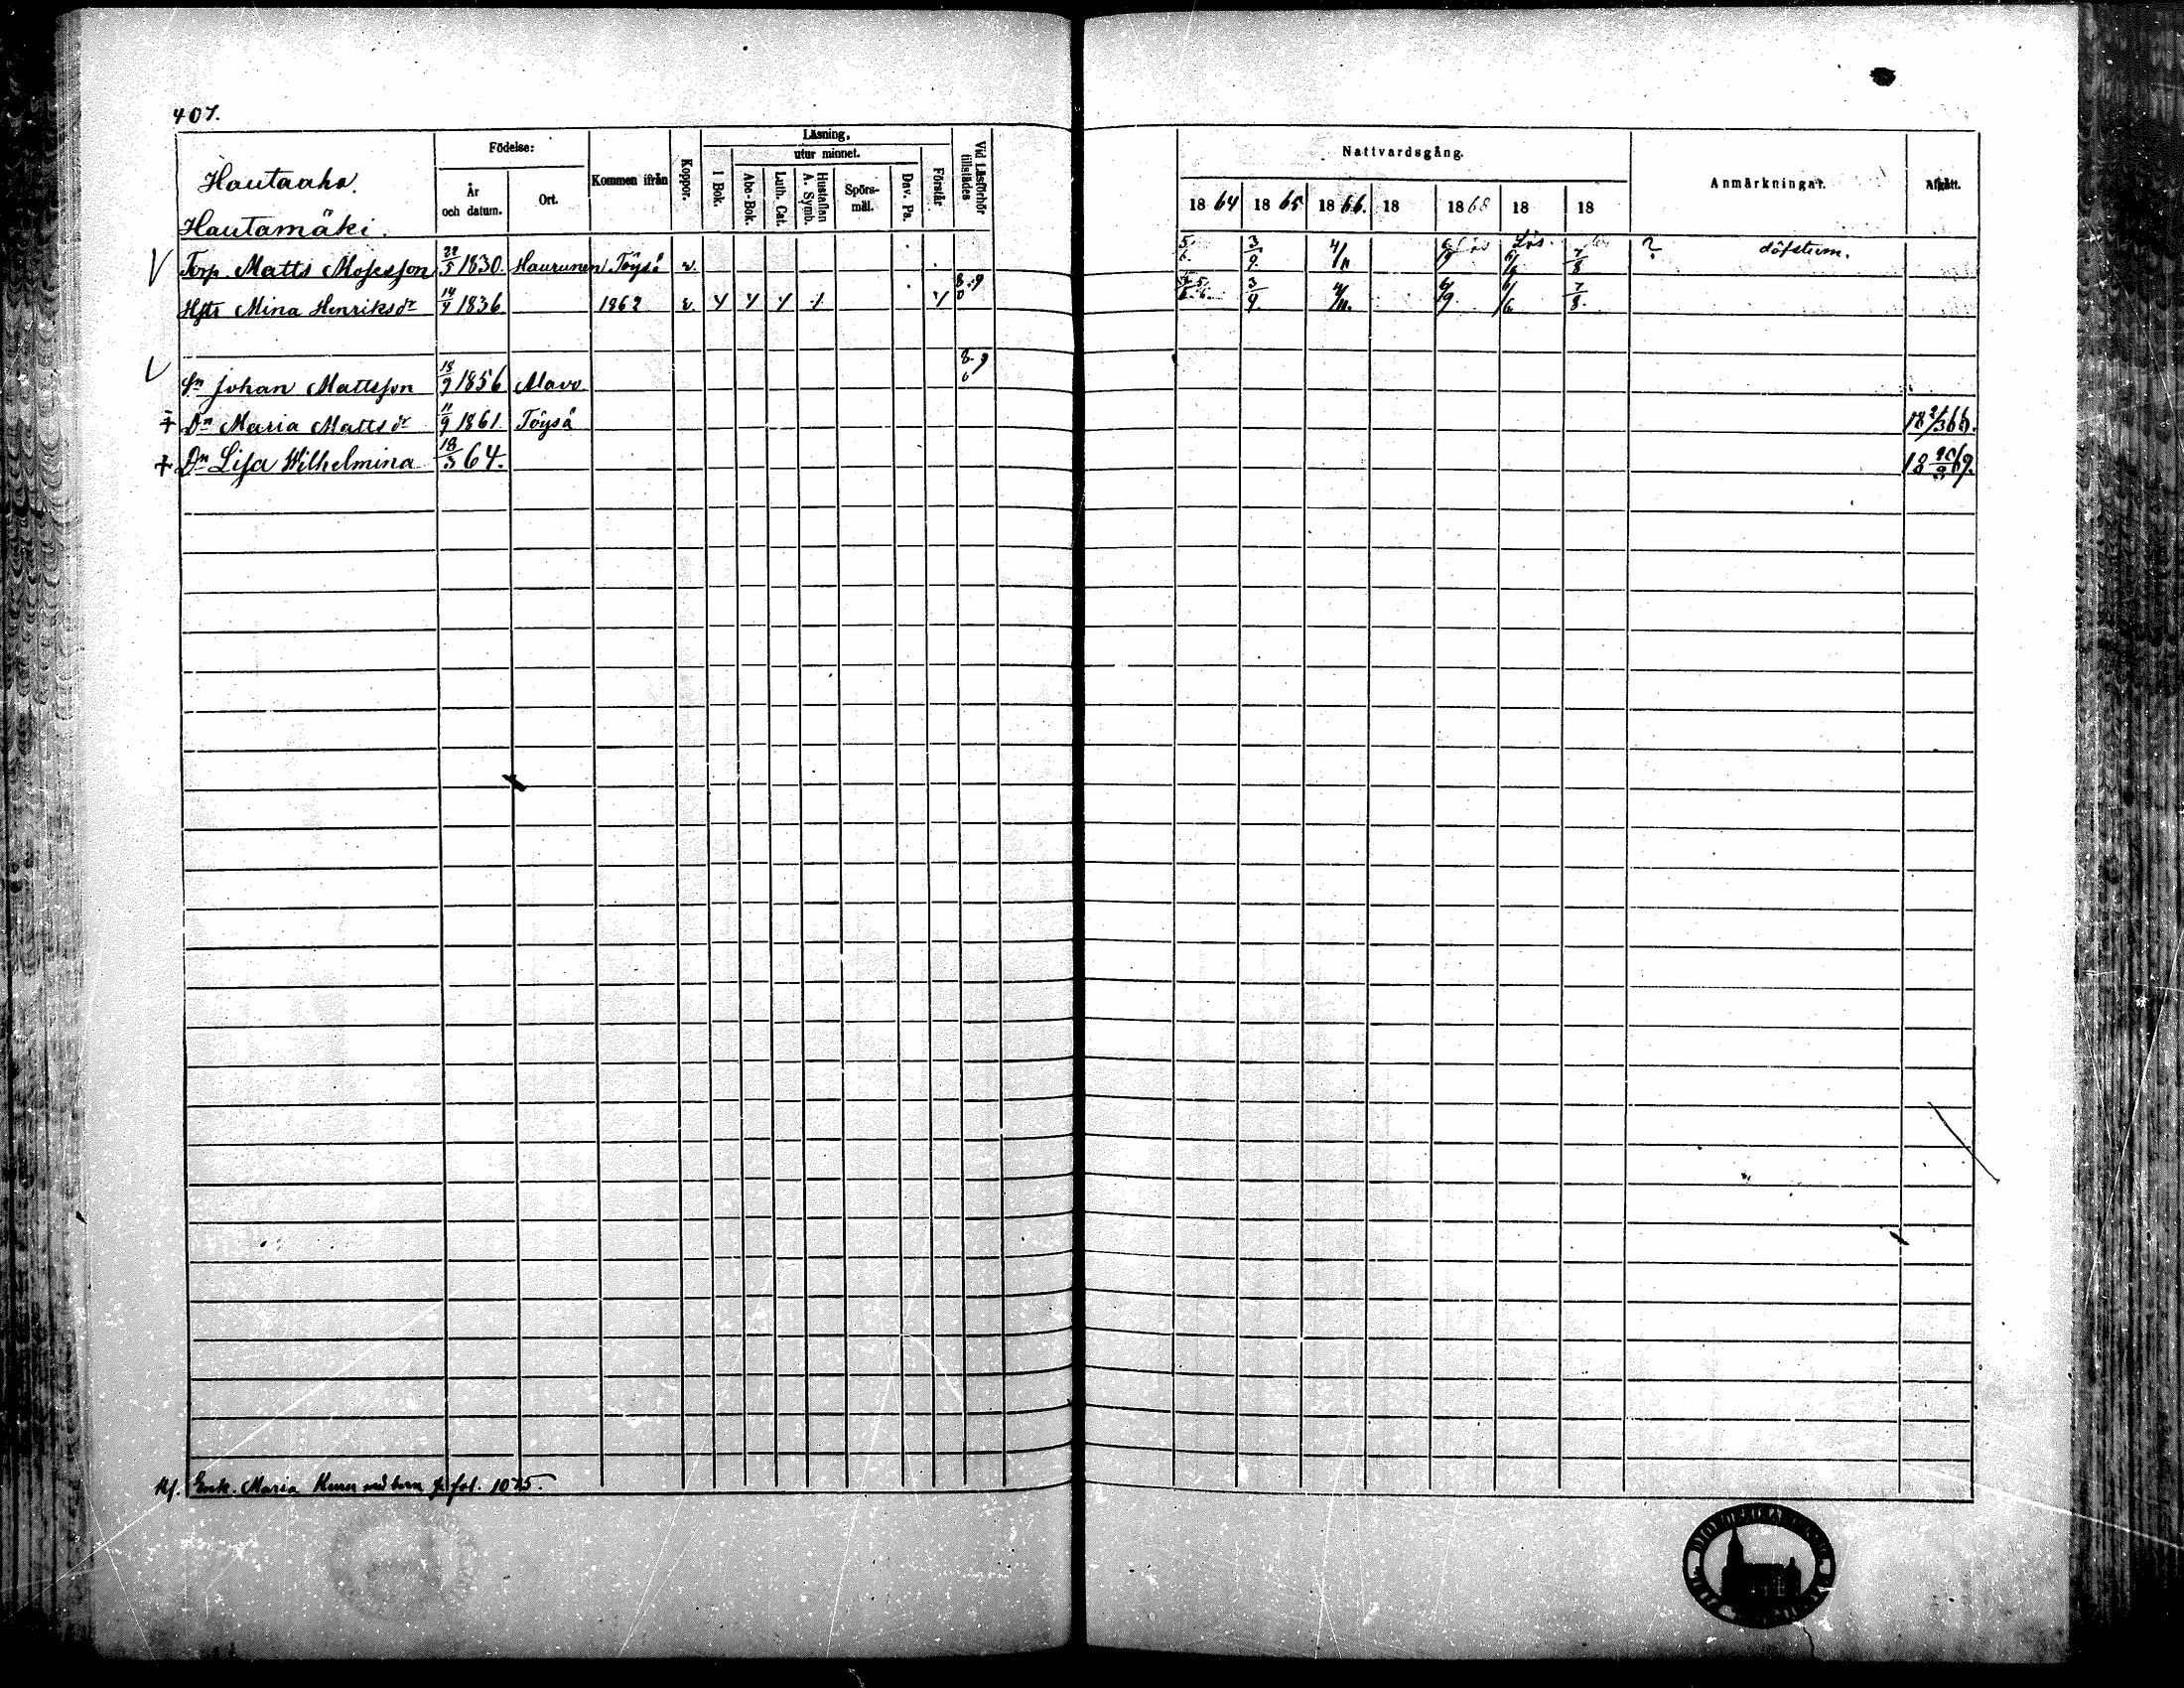 407.
Hautaaho.
Hautamäki.
Födelse:
År
och datum.
Ort.
Kommen ifrån
Koppor.
Läsning,
utur minnet.
I Bok.
Abc-Bok.
Luth. Cat.
Hustaflan
A. Symb.
Spörs-
mål.
Dav. Ps.
Förstår
Vid Läsförhör
tillstädes
Nattvardsgång.
18 64 18 65 18 66. 18 18 68 18 18
Anmärkningar.
Afgått.
Torp. Matts Mosesson 22/5 1830. Haurunen Töysä v. 5/6. 3/9. 4/11 6/9 7/8 ? döfstum.
Hstr Mina Henriksdr 14/9 1836 1862 v. 3/9. 4/11. 6/9. 7/8.
Sn Johan Mattsson 18/9 1856 Alavo 8. 9
† Dn Maria Mattsdr 11/9 1861 Töysä
† Dn Lisa Wilhelmina 18/3 64.
Enk. Maria fol. 1075.